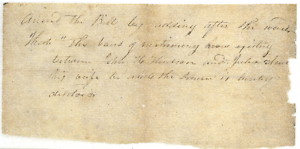 Amend the Bill by adding after the word
that "The bans of matrimony now existing
between John C. Thurman and Julia Ann
his wife be and the same is hereby
dissolved